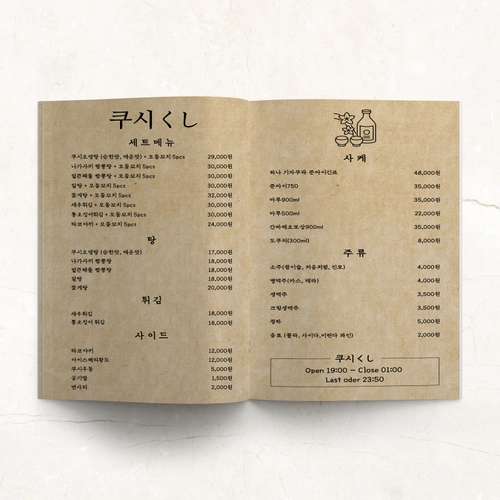 쿠시くし
세트메뉴
쿠시오뎅탕 (순한맛, 매운맛) + 모둠꼬치 5pcs 29,000원
나가사끼 짬뽕탕 + 모둠꼬치 5pcs 30,000원
얼큰해물 짬뽕탕 + 모둠꼬치 5pcs 30,000원
알탕 + 모둠꼬치 5pcs 30,000원
꽃게탕 + 모둠꼬치 5pcs 32,000원
새우튀김 + 모둠꼬치 5pcs 30,000원
통오징어튀김 + 모둠꼬치 5pcs 30,000원
타코야끼 + 모둠꼬치 5pcs 24,000원
탕
쿠시오뎅탕 (순한맛, 매운맛) 17,000원
나가사끼 짬뽕탕 18,000원
얼큰해물 짬뽕탕 18,000원
알탕 18,000원
꽃게탕 20,000원
튀김
새우튀김 18,000원
통오징어 튀김 18,000원
사이드
타코야끼 12,000원
아이스께끼황도 12,000원
쿠시우동 5,000원
공기밥 1,500원
면사리 2,000원
사케
하나 기자쿠라 준마이긴죠 48,000원
준마이750 35,000원
마루900ml 35,000원
마루500ml 22,000원
간바레오또상900ml 35,000원
도쿠리(300ml) 8,000원
주류
소주(참이슬, 처음처럼, 진로) 4,000원
병맥주(카스, 테라) 4,000원
생맥주 3,500원
크림생맥주 3,500원
청하 5,000원
음료 (콜라, 사이다, 미린다 파인) 2,000원
쿠시くし
Open 19:00 ~ Close 01:00
Last oder 23:50